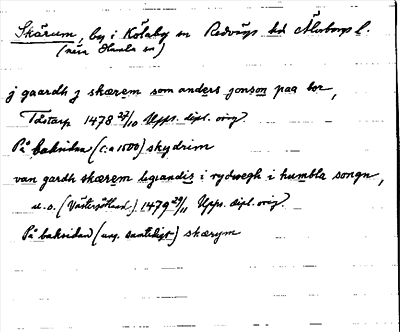 Skärum, by i Kölaby sn Redvägs hd Älvborgs l.
(nära Humla sn)
j gaardh j skærem som anders jonson paa bor,
Tästarp 1478 27/10 Upps. dipl. orig.
På baksidan (c:a 1500) skydrim
van gardh skærem liggiandis i rydwegh i humbla songn,
u. o. (Västergötland) 1479 29/11 Upps. dipl. orig.
På baksidan (ung. samtidigt) skærym